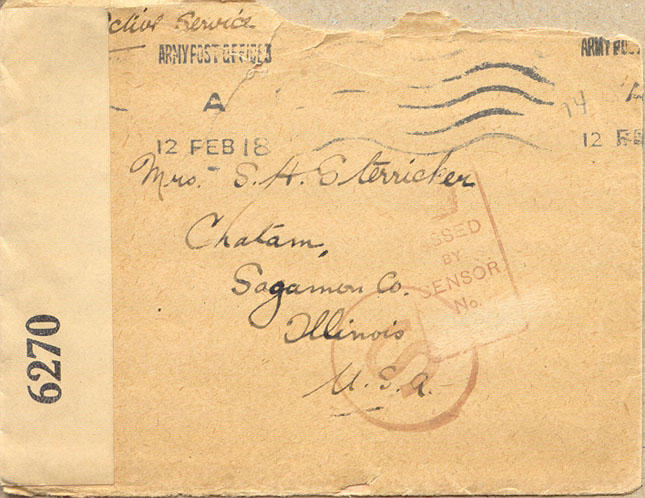 Active Service
ARMY POST OFFICE 3
ARMY POS
A
12 FEB 18
12 FE
Mrs. S. H. Sterricker
Chatam,
Sagamon Co.
Illinois
U.S.A.
SSED
BY
CENSOR
No.
6270